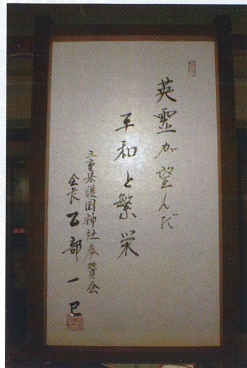 英霊が望んだ
平和と繁栄
三重県護国神社奉賛会
会長 乙部 一巳